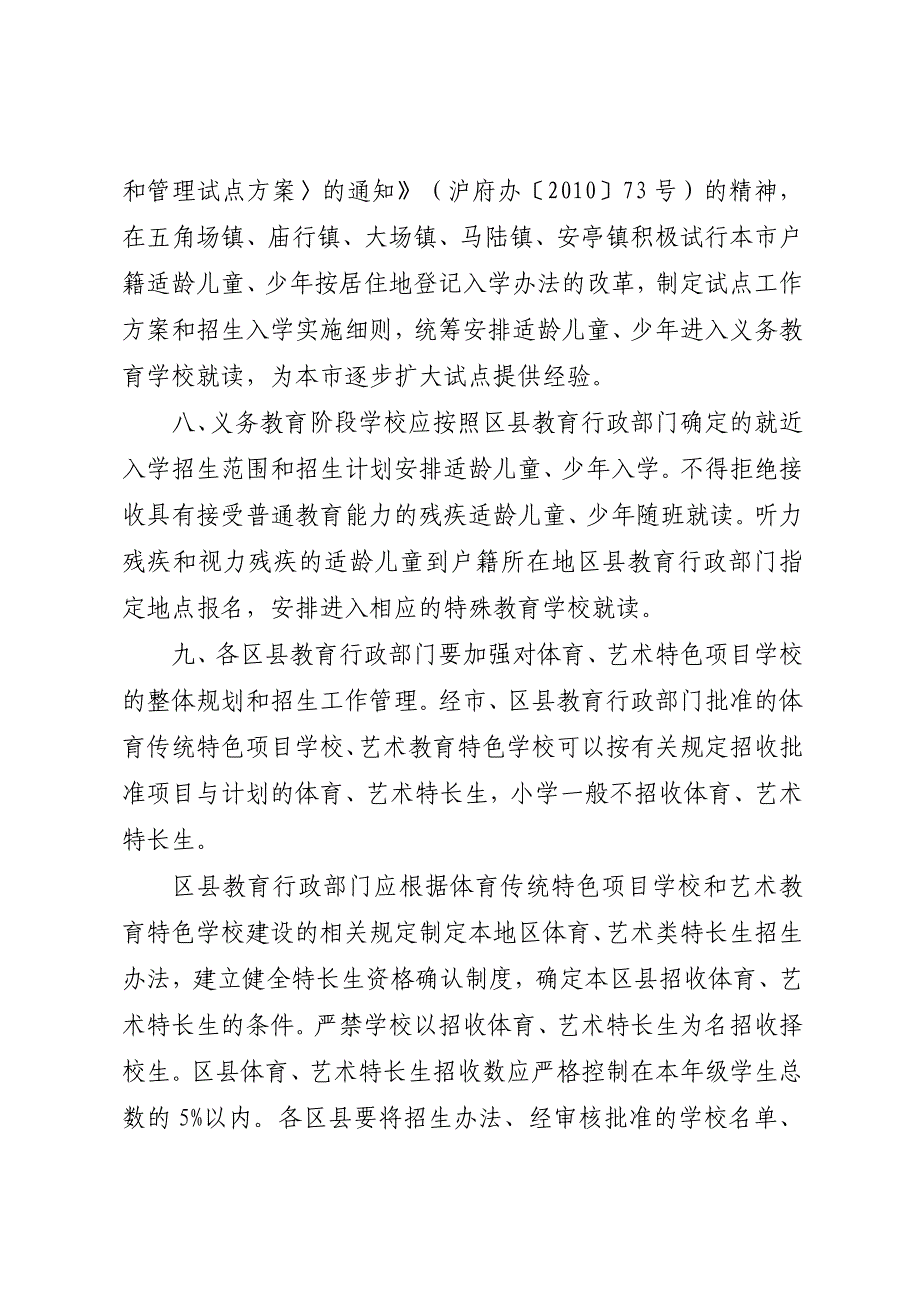 和管理试点方案〉的通知》（沪府办〔2010〕73 号）的精神，
在五角场镇、庙行镇、大场镇、马陆镇、安亭镇积极试行本市户
籍适龄儿童、少年按居住地登记入学办法的改革，制定试点工作
方案和招生入学实施细则，统筹安排适龄儿童、少年进入义务教
育学校就读，为本市逐步扩大试点提供经验。
八、义务教育阶段学校应按照区县教育行政部门确定的就近
入学招生范围和招生计划安排适龄儿童、少年入学。不得拒绝接
收具有接受普通教育能力的残疾适龄儿童、少年随班就读。听力
残疾和视力残疾的适龄儿童到户籍所在地区县教育行政部门指
定地点报名，安排进入相应的特殊教育学校就读。
九、各区县教育行政部门要加强对体育、艺术特色项目学校
的整体规划和招生工作管理。经市、区县教育行政部门批准的体
育传统特色项目学校、艺术教育特色学校可以按有关规定招收批
准项目与计划的体育、艺术特长生，小学一般不招收体育、艺术
特长生。
区县教育行政部门应根据体育传统特色项目学校和艺术教
育特色学校建设的相关规定制定本地区体育、艺术类特长生招生
办法，建立健全特长生资格确认制度，确定本区县招收体育、艺
术特长生的条件。严禁学校以招收体育、艺术特长生为名招收择
校生。区县体育、艺术特长生招收数应严格控制在本年级学生总
数的 5%以内。各区县要将招生办法、经审核批准的学校名单、